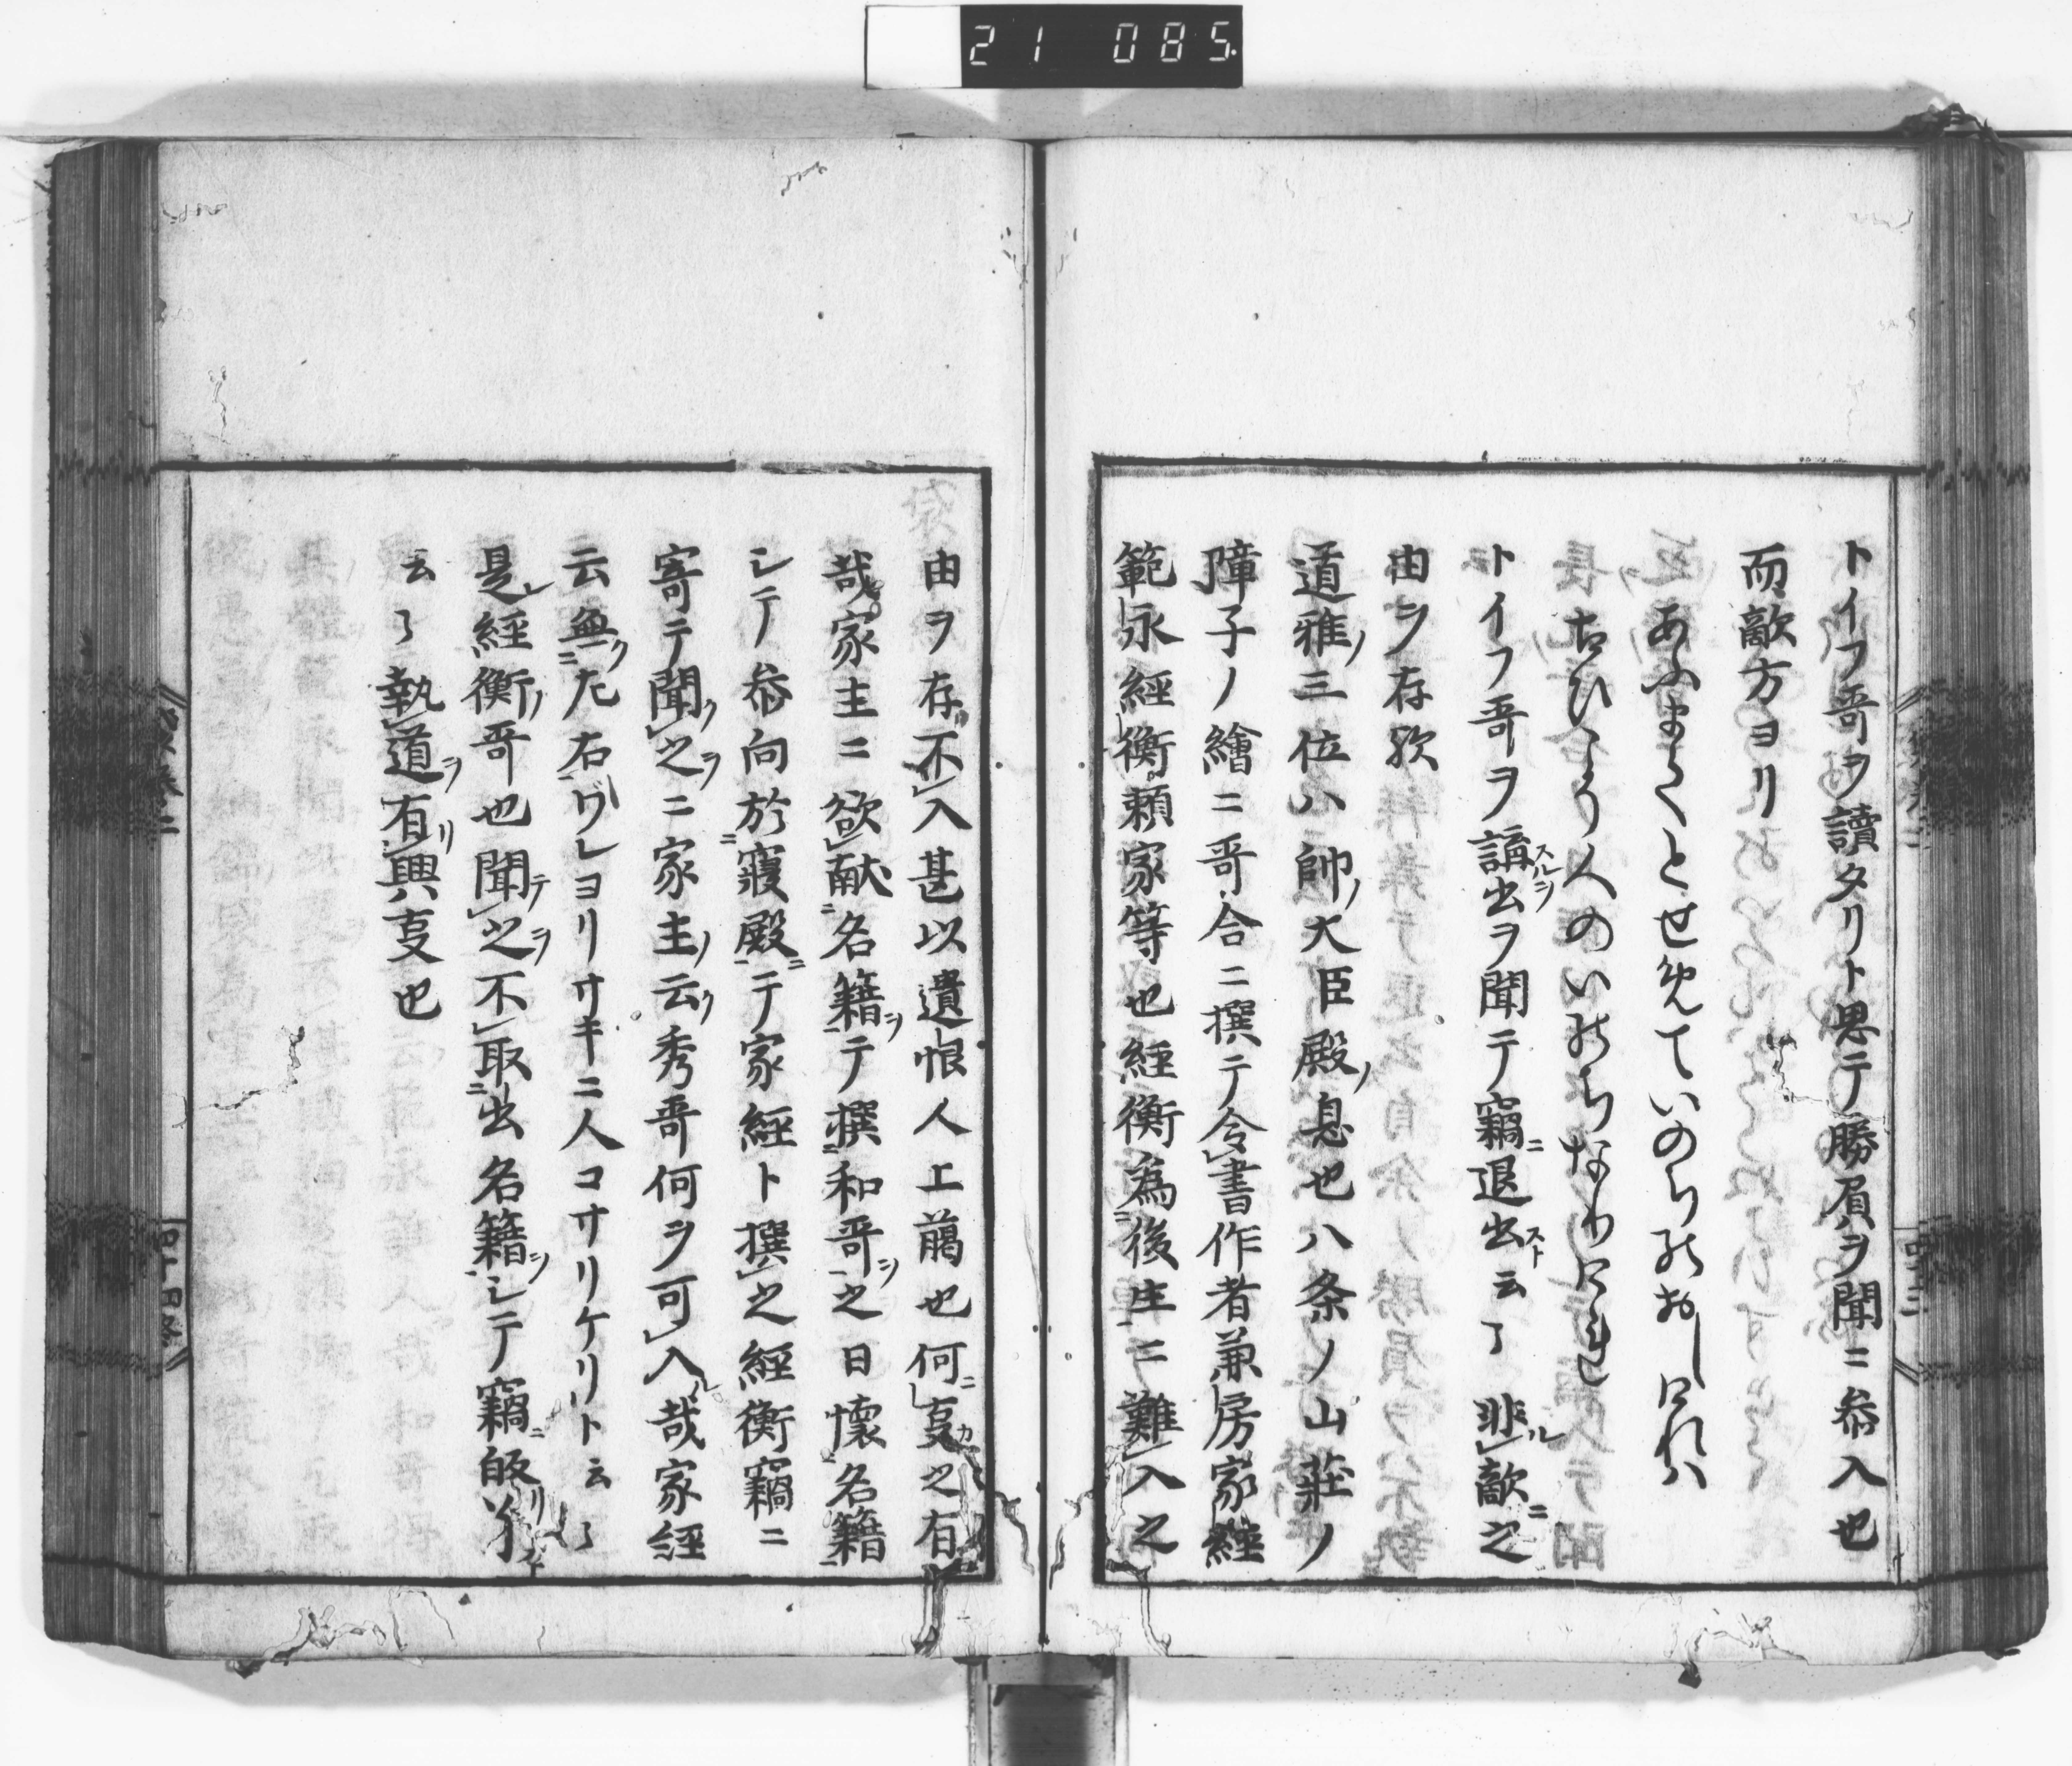 21 085
トイフ哥ヲ讀タリト思テ勝負ヲ聞ニ参入也
而敵方ヨリ
あふまてとせめていのちのおしけれハ
こひこそ人のいのちなりけれ
トイフ哥ヲ講出スルヲ聞テ竊ニ退出スト云々非敵ニ之
由ヲ存歟
道雅ノ三位ハ帥ノ大臣殿ノ息也八条ノ山荘ノ
障子ノ繪ニ哥合ニ撰テ令書作者兼房家經
範永經衡頼家等也經衡為後生ニ難入之
由ヲ存不入甚以遺恨人上﨟也何ニ夏カ之有
哉家主ニ欲献名籍ヲテ撰和哥ヲ之日懷名籍
シテ参向於寝殿ニテ家經ト撰之經衡竊ニ
寄テ聞ク之ヲニ家主ノ云ク秀哥何ヲ可入ル哉家經
云無ク左右ヴレヨリサキニ人コサリケリト云々
是レ經衡ノ哥也聞テ之ヲ不取出名籍ヲシテ竊ニ皈リ了
云々執道ヲ有リ興夏也